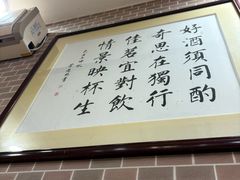 好酒須同酌
奇思在獨行
佳茗宜對飲
情景映杯生